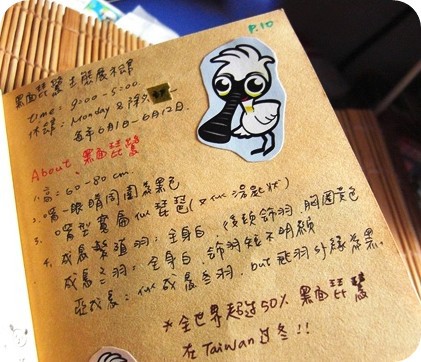 P.10
黑面琵鷺生態展示館
time: 9:00-5:00
休館: Monday & 除夕
每年6月1日-6月12日.
About 黑面琵鷺
1. 高: 60-80 cm.
2. 嘴-眼睛周圍為黑色
3. 嘴型寬扁似琵琶(又似湯匙狀)
4. 成鳥繁殖羽: 全身白, 後頭飾羽, 胸圍黃色
成鳥冬羽: 全身白, 飾羽短不明顯
亞成鳥: 似成鳥冬羽, but 飛羽外緣為黑.
*全世界超過50% 黑面琵鷺
在Taiwan過冬!!